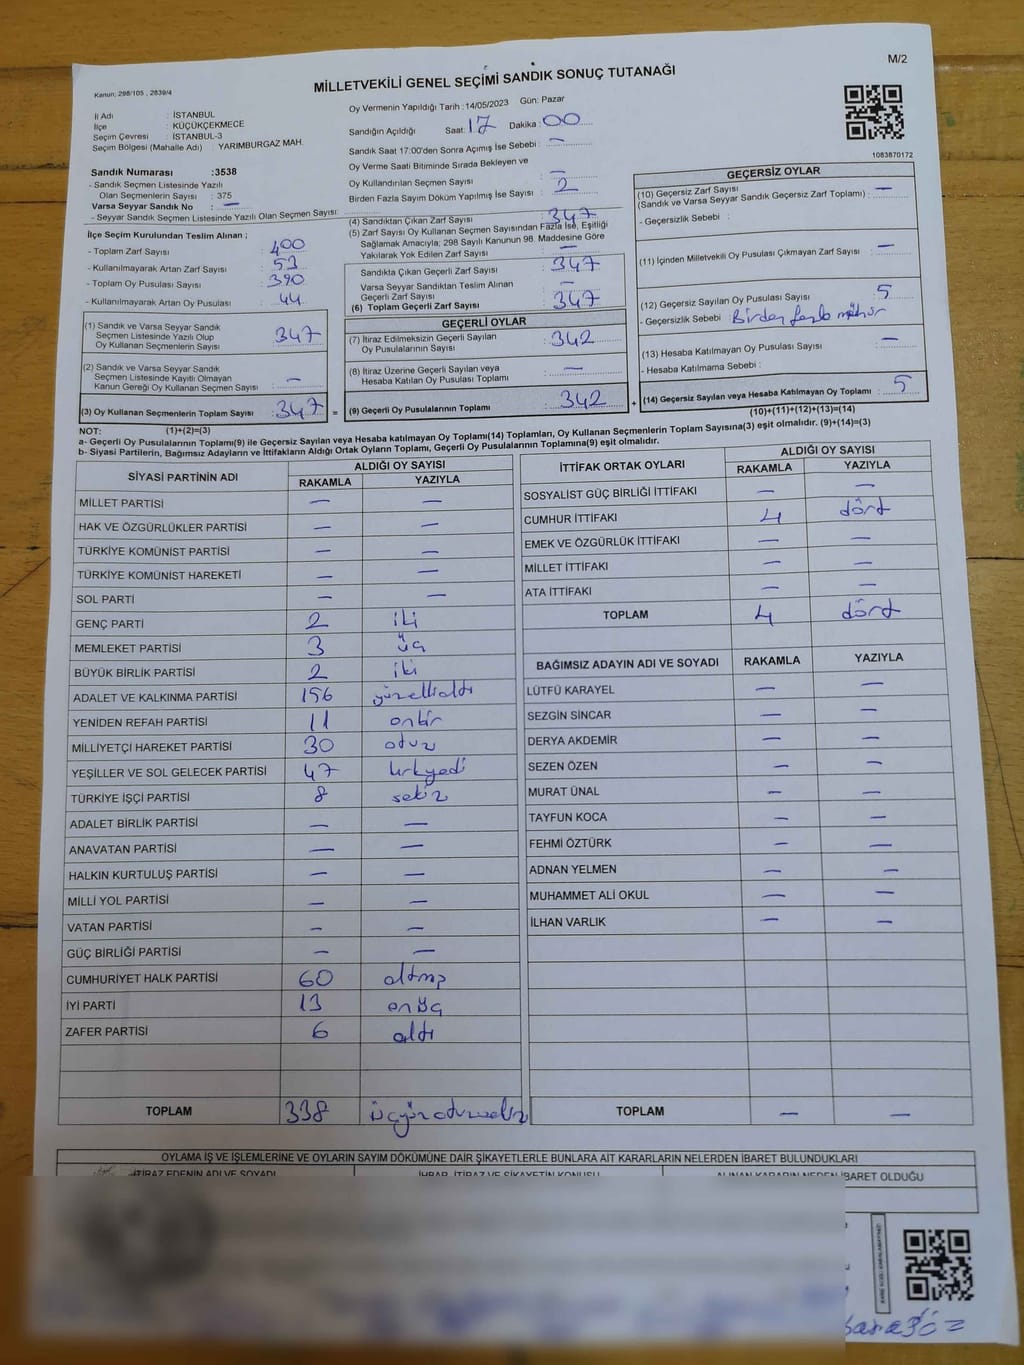 M/2
Kanun; 298/105 , 2839/4
MİLLETVEKİLİ GENEL SEÇİMİ SANDIK SONUÇ TUTANAĞI
İl Adı : İSTANBUL
İlçe : KÜÇÜKÇEKMECE
Seçim Çevresi : İSTANBUL-3
Seçim Bölgesi (Mahalle Adı) : YARIMBURGAZ MAH.
Sandık Numarası :3538
- Sandık Seçmen Listesinde Yazılı
Olan Seçmenlerin Sayısı : 375
Varsa Seyyar Sandık No : —
- Seyyar Sandık Seçmen Listesinde Yazılı Olan Seçmen Sayısı:
Oy Vermenin Yapıldığı Tarih :14/05/2023 Gün: Pazar
Sandığın Açıldığı Saat: 17 Dakika : 00
Sandık Saat 17:00'den Sonra Açımış İse Sebebi : —
Oy Verme Saati Bitiminde Sırada Bekleyen ve
Oy Kullandırılan Seçmen Sayısı : —
Birden Fazla Sayım Döküm Yapılmış İse Sayısı : 2
1083870172
İlçe Seçim Kurulundan Teslim Alınan ;
- Toplam Zarf Sayısı : 400
- Kullanılmayarak Artan Zarf Sayısı : 53
- Toplam Oy Pusulası Sayısı : 390
- Kullanılmayarak Artan Oy Pusulası : 44
(1) Sandık ve Varsa Seyyar Sandık
Seçmen Listesinde Yazılı Olup
Oy Kullanan Seçmenlerin Sayısı : 347
(2) Sandık ve Varsa Seyyar Sandık
Seçmen Listesinde Kayıtlı Olmayan
Kanun Gereği Oy Kullanan Seçmen Sayısı : —
(3) Oy Kullanan Seçmenlerin Toplam Sayısı : 347 =
(1)+(2)=(3)
(4) Sandıktan Çıkan Zarf Sayısı : 347
(5) Zarf Sayısı Oy Kullanan Seçmen Sayısından Fazla İse, Eşitliği
Sağlamak Amacıyla; 298 Sayılı Kanunun 98. Maddesine Göre
Yakılarak Yok Edilen Zarf Sayısı : —
Sandıkta Çıkan Geçerli Zarf Sayısı : 347
Varsa Seyyar Sandıktan Teslim Alınan
Geçerli Zarf Sayısı : —
(6) Toplam Geçerli Zarf Sayısı : 347
GEÇERLİ OYLAR
(7) İtiraz Edilmeksizin Geçerli Sayılan
Oy Pusulalarının Sayısı : 342
(8) İtiraz Üzerine Geçerli Sayılan veya
Hesaba Katılan Oy Pusulası Toplamı : —
(9) Geçerli Oy Pusulalarının Toplamı : 342 +
GEÇERSİZ OYLAR
(10) Geçersiz Zarf Sayısı
(Sandık ve Varsa Sandık Geçersiz Zarf Toplamı) : —
- Geçersizlik Sebebi :
(11) İçinden Milletvekili Oy Pusulası Çıkmayan Zarf Sayısı : —
(12) Geçersiz Sayılan Oy Pusulası Sayısı : 5
- Geçersizlik Sebebi : Birden fazla mühür
(13) Hesaba Katılmayan Oy Pusulası Sayısı : —
- Hesaba Katılmama Sebebi :
(14) Geçersiz Sayılan veya Hesaba Katılmayan Oy Toplamı : 5
(10)+(11)+(12)+(13)=(14)
NOT:
a- Geçerli Oy Pusulalarının Toplamı(9) ile Geçersiz Sayılan veya Hesaba katılmayan Oy Toplamı(14) Toplamları, Oy Kullanan Seçmenlerin Toplam Sayısına(3) eşit olmalıdır. (9)+(14)=(3)
b- Siyasi Partilerin, Bağımsız Adayların ve İttifakların Aldığı Ortak Oyların Toplamı, Geçerli Oy Pusulalarının Toplamına(9) eşit olmalıdır.
SİYASİ PARTİNİN ADI ALDIĞI OY SAYISI
RAKAMLA YAZIYLA
MİLLET PARTİSİ — —
HAK VE ÖZGÜRLÜKLER PARTİSİ — —
TÜRKİYE KOMÜNİST PARTİSİ — —
TÜRKİYE KOMÜNİST HAREKETİ — —
SOL PARTİ — —
GENÇ PARTİ 2 iki
MEMLEKET PARTİSİ 3 üç
BÜYÜK BİRLİK PARTİSİ 2 iki
ADALET VE KALKINMA PARTİSİ 156 yüzellialtı
YENİDEN REFAH PARTİSİ 11 onbir
MİLLİYETÇİ HAREKET PARTİSİ 30 otuz
YEŞİLLER VE SOL GELECEK PARTİSİ 47 kırkyedi
TÜRKİYE İŞÇİ PARTİSİ 8 sekiz
ADALET BİRLİK PARTİSİ — —
ANAVATAN PARTİSİ — —
HALKIN KURTULUŞ PARTİSİ — —
MİLLİ YOL PARTİSİ — —
VATAN PARTİSİ — —
GÜÇ BİRLİĞİ PARTİSİ — —
CUMHURİYET HALK PARTİSİ 60 altmış
İYİ PARTİ 13 onüç
ZAFER PARTİSİ 6 altı
TOPLAM 338 üçyüzotuzsekiz
İTTİFAK ORTAK OYLARI ALDIĞI OY SAYISI
RAKAMLA YAZIYLA
SOSYALİST GÜÇ BİRLİĞİ İTTİFAKI — —
CUMHUR İTTİFAKI 4 dört
EMEK VE ÖZGÜRLÜK İTTİFAKI — —
MİLLET İTTİFAKI — —
ATA İTTİFAKI — —
TOPLAM 4 dört
BAĞIMSIZ ADAYIN ADI VE SOYADI RAKAMLA YAZIYLA
LÜTFÜ KARAYEL — —
SEZGİN SİNCAR — —
DERYA AKDEMİR — —
SEZEN ÖZEN — —
MURAT ÜNAL — —
TAYFUN KOCA — —
FEHMİ ÖZTÜRK — —
ADNAN YELMEN — —
MUHAMMET ALİ OKUL — —
İLHAN VARLIK — —
TOPLAM — —
OYLAMA İŞ VE İŞLEMLERİNE VE OYLARIN SAYIM DÖKÜMÜNE DAİR ŞİKAYETLERLE BUNLARA AİT KARARLARIN NELERDEN İBARET BULUNDUKLARI
İTİRAZ EDENİN ADI VE SOYADI İHBAR, İTİRAZ VE ŞİKAYETİN KONUSU ALINAN KARARIN NEDEN İBARET OLDUĞU